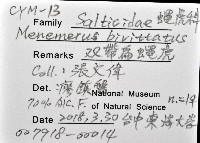 CYM-13
Family Salticidae 蠅虎科
Menemerus bivittatus
Remarks 双帶扁蠅虎
Coll.: 張文偉
Det.:
National Museum
70% Alc. F. of Natural Science n.=14
Date 2018.3.30 台中東海大學
007918-00014